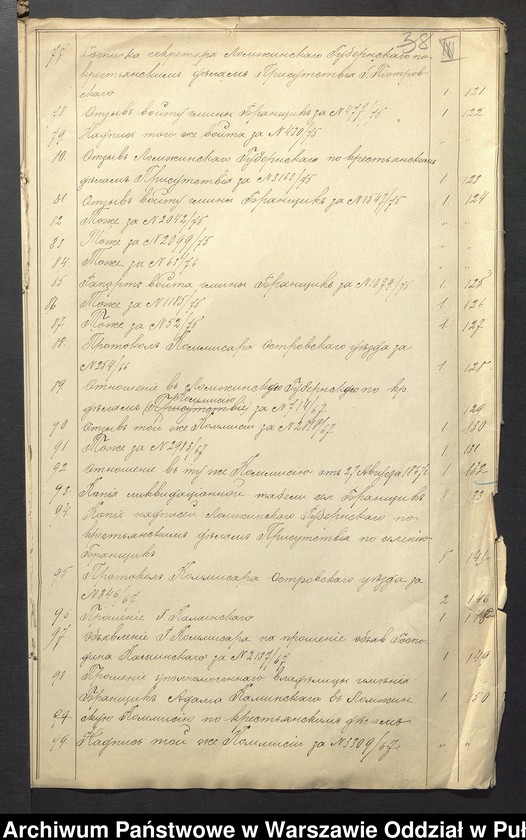 38 IV
77 Отписка секретаря Ломжинскаго Губернскаго по
крестьянскимъ дѣламъ Присутствія Г. Піотров-
скаго 1 121
78 Отзывъ войту гмины Бранщикъ за № 477/75 1 122
79 Надпись того же войта за № 430/75 "
80 Отзывъ Ломжинскаго Губернскаго по крестьянскимъ
дѣламъ Присутствія за № 3162/75 1 123
81 Отзывъ войту гмины Бранщикъ за № 1547/75 1 124
82 Тоже за № 2042/75 " "
83 Тоже за № 2099/75 " "
84 Тоже за № 63/76 " "
85 Рапортъ войта гмины Бранщикъ за № 1079/75 1 125
86 Тоже за № 1185/75 1 126
87 Тоже за № 52/75 1 127
88 Протоколъ Коммисара Островскаго уѣзда за
№ 254/66 1 128
89 Отношеніе въ Ломжинскую Губернскую по кр.
дѣламъ Коммисію Присутствіе за № 14/67 129
90 Отзывъ той же Коммисіи за № /67 1 130
91 Тоже за № 2983/67 1 131
92 Отношеніе въ ту же Коммисію отъ 27 Августа 1 132
93 Копія ликвидаціонной табели сел. Бранщикъ 133
94 Копія надписей Ломжинскаго Губернскаго по
крестьянскимъ дѣламъ Присутствія по селенію
Бранщикъ
95 Протоколъ Коммисара Островскаго уѣзда за
№ 346/67 2 146
96 Прошеніе Г. Каминскаго 1
97 Объявленіе Г Коммисара на прошеніе объяв. Госпо-
дина Каминскаго за № 2187/67 1 149
98 Прошеніе уполномоченнаго владѣлицы имѣнія
Бранщикъ Адама Каминскаго въ Ломжин 1 150
скую Коммисію по крестьянскимъ дѣламъ
99 Надпись той же Коммисіи за № 3309/67 " "
Archiwum Państwowe w Warszawie Oddział w Puł